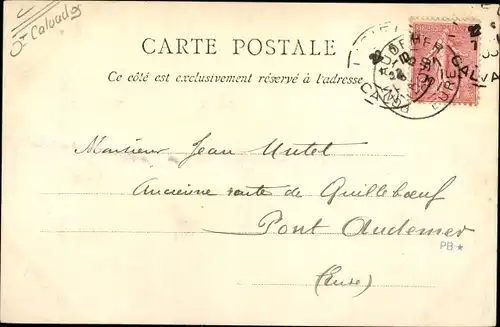 Calvados
CARTE POSTALE
Ce côté est exclusivement réservé à l'adresse
Monsieur Jean Mutel
Ancienne route de Quillebœuf
Pont Audemer
(Eure)
PB *
AUDEMER
EURE
CALVA